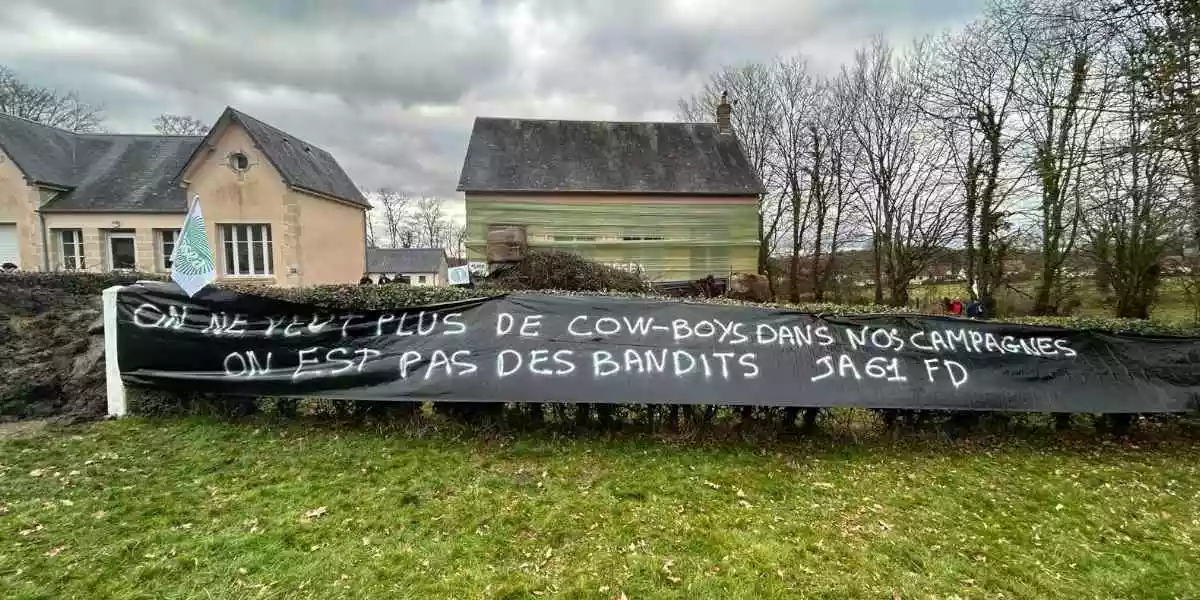 ON NE VEUT PLUS DE COW-BOYS DANS NOS CAMPAGNES
ON EST PAS DES BANDITS JA61 FD